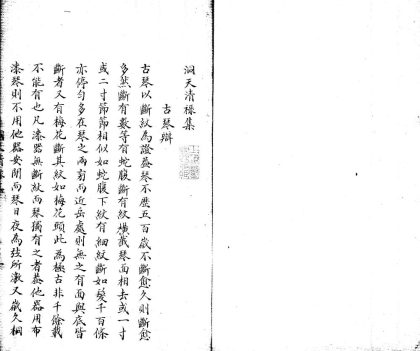 洞天清祿集
古琴辯
古琴以斷紋為證蓋琴不歷五百歲不斷愈久則斷愈
多然斷有數等有蛇腹斷有紋橫截琴面相去或一寸
或二寸節節相似如蛇腹下紋有細紋斷如髮千百條
亦停勻多在琴之兩旁而近岳處則無之有面與底皆
斷者又有梅花斷其紋如梅花頭此為極古非千餘載
不能有也凡漆器無斷紋而琴獨有之者蓋他器用布
漆琴則不用他器安閒而琴日夜為弦所激又歲久桐